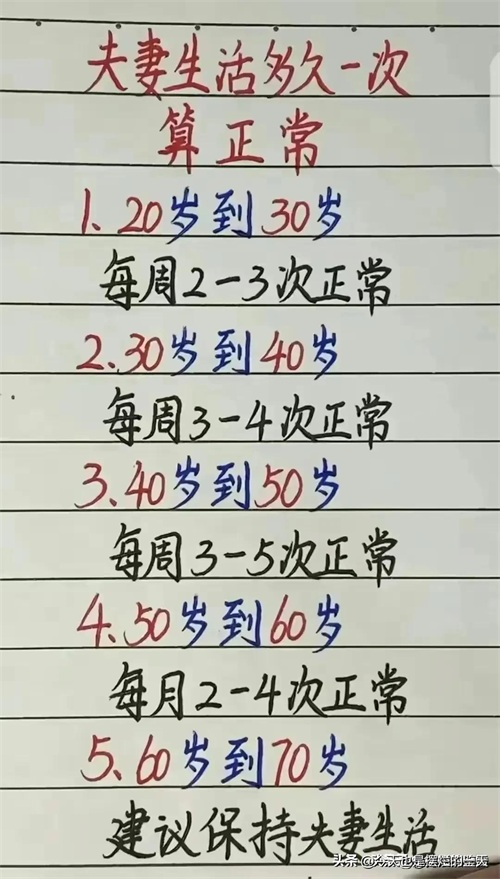 夫妻生活多久一次
算正常
1.20岁到30岁
每周2-3次正常
2.30岁到40岁
每周3-4次正常
3.40岁到50岁
每周3-5次正常
4.50岁到60岁
每月2-4次正常
5.60岁到70岁
建议保持夫妻生活
头条@今天也是摆烂的